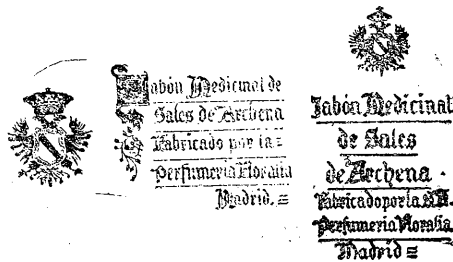 Jabón Medicinal de
Sales de Archena
Fabricado por la=
Perfumeria Floralia
Madrid. =
Jabón Medicinal
de Sales
de Archena.
Fabricado por la S.A.
Perfumeria Floralia
Madrid =